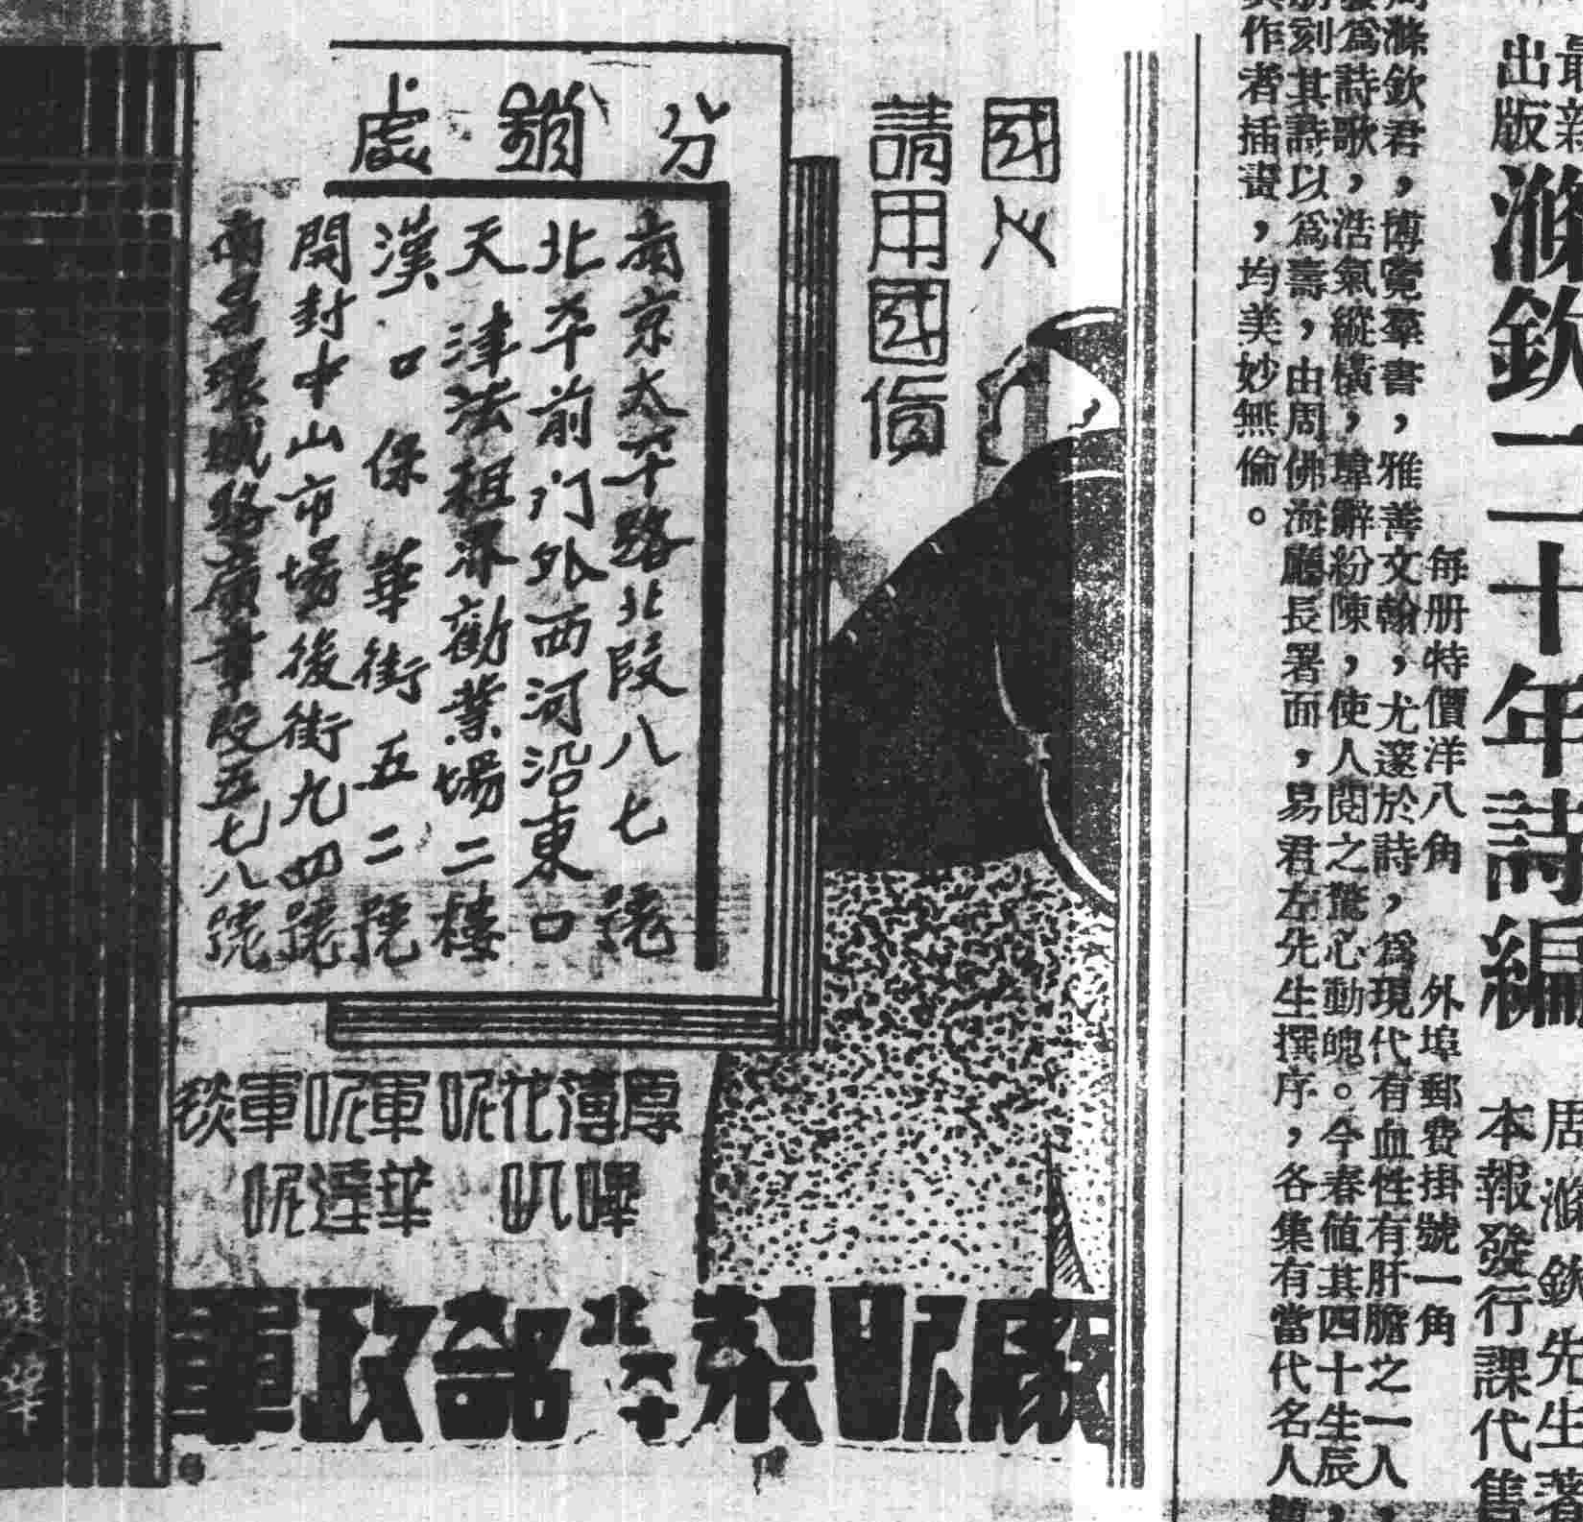 最新
出版
滌欽二十年詩編
周滌欽先生著
本報發行課代售
每册特價洋八角 外埠郵費掛號一角
周滌欽君，博覽羣書，雅善文翰，尤邃於詩，爲現代有血性有肝膽之一人，
發爲詩歌，浩氣縱橫，瑋辭紛陳，使人閱之驚心動魄。今春值其四十生辰，
刻其詩以爲壽，由周佛海廳長署面，易君左先生撰序，各集有當代名人
作者插畫，均美妙無倫。
國人
請用國貨
分銷處
南京太平路北段八七號
北平前门外西河沿東口
天津法租界勸業場二樓
漢口保華街五二號
開封中山市場後街九四號
南昌環城路廣章段五七八號
厚薄花呢軍呢軍毯
嗶嘰 華達呢
軍政部北平製呢廠